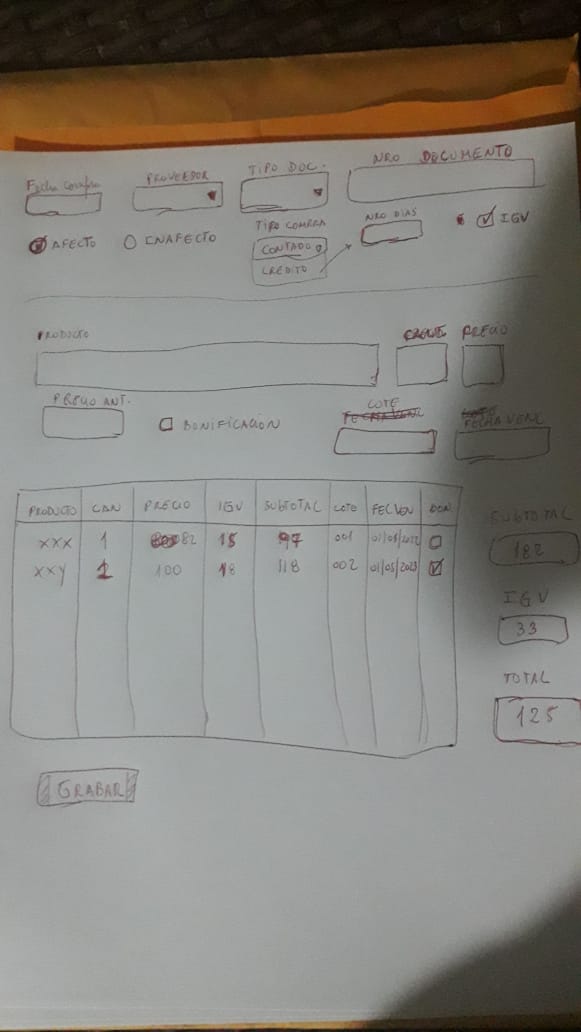 Fecha compra PROVEEDOR TIPO DOC. NRO DOCUMENTO
AFECTO INAFECTO TIPO COMPRA NRO DIAS IGV
CONTADO
CREDITO
PRODUCTO PRECIO
PRECIO ANT. BONIFICACION LOTE FECHA VENC
PRODUCTO CAN PRECIO IGV SUBTOTAL LOTE FECVEN BON
XXX 1 82 15 97 001 01/05/2022
XXY 1 100 18 118 002 01/05/2023
SUBTOTAL
182
IGV
33
TOTAL
125
GRABAR